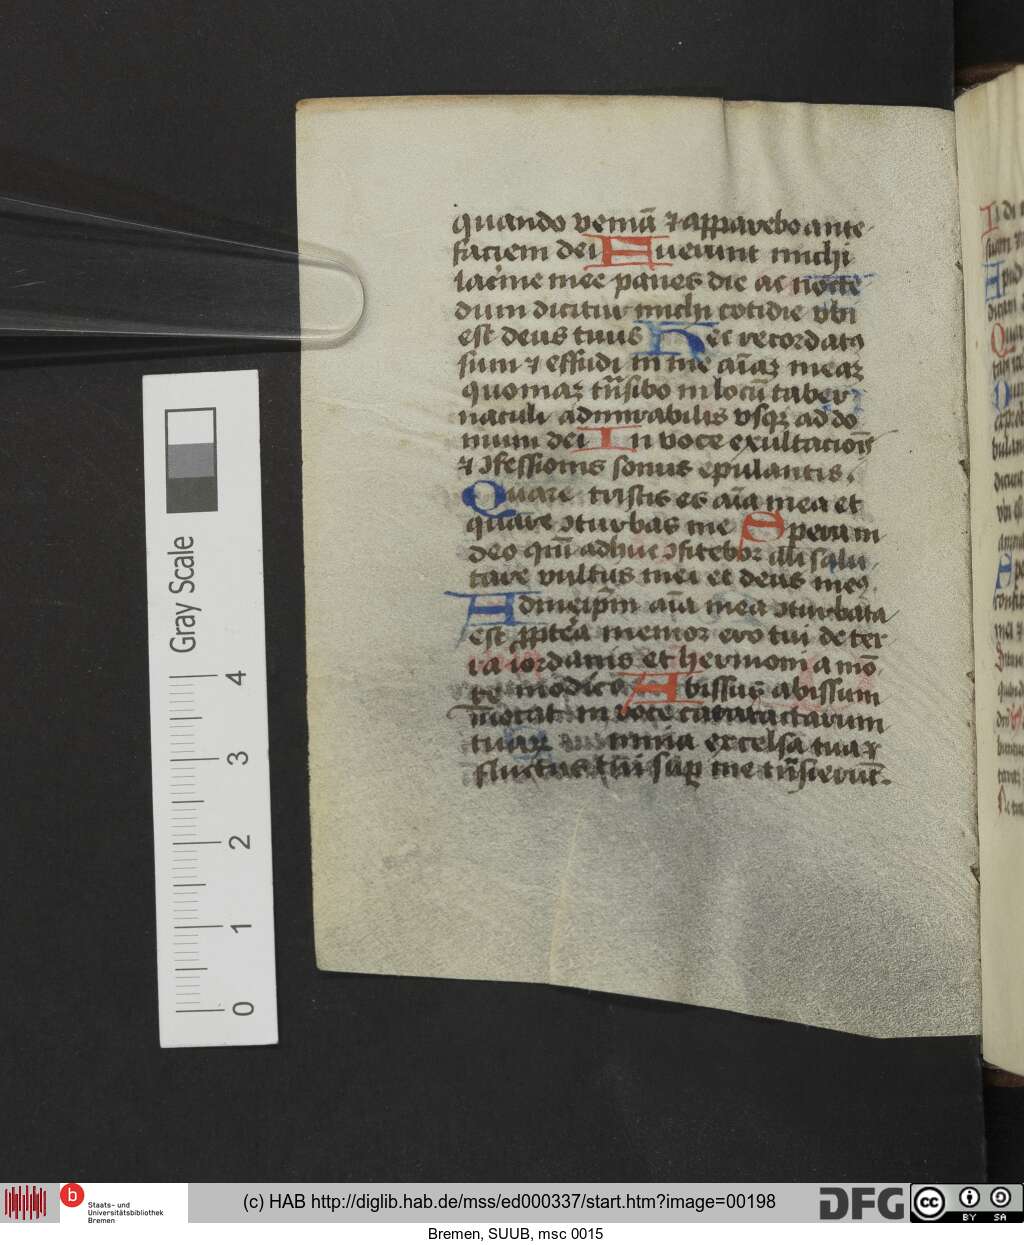 quando veniā ⁊ apparebo ante
faciem dei Fuerunt michi
lacͥme mee panes die ac nocte
dum dicitur michi cotidie vbi
est deus tuus Hec recordatꝯ
sum ⁊ effudi in me aīaꝫ meaꝫ
quoniaꝫ tn̄sibo in locū taber
naculi admirabilis vsqꝫ ad do
mum dei In voce exultacioīs
⁊ ↄfessionis sonus epulantis.
Quare tristis es aīa mea et
quare ↄturbas me Spera in
deo qm̄ adhuc ↄfitebor illi salu
tare vultus mei et deus meꝯ
Ad me ip̄m aīa mea ↄturbata
est ꝓpt'ea memor ero tui de ter
ra iordanis et hermoni a mō
te modico Abissus abissum
īuocat in voce cataractarum
tuaꝝ omnia excelsa tua ⁊
fluctus tui suꝑ me tn̄sierūt.
Gray Scale
4
3
2
1
0
b
Staats- und
Universitätsbibliothek
Bremen
(c) HAB http://diglib.hab.de/mss/ed000337/start.htm?image=00198
DFG
cc BY SA
Bremen, SUUB, msc 0015